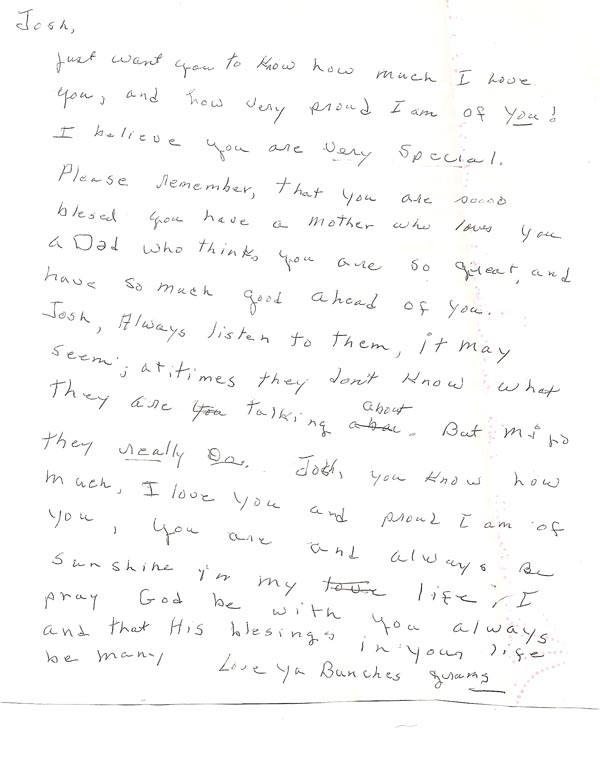 Josh,
Just want you to know how much I love
you, and how very proud I am of you!
I believe you are very special.
Please remember, that you are soooo
blesed you have a mother who loves you
a Dad who thinks you are so great, and
have so much good ahead of you.
Josh, Always listen to them, it may
seem, at times they don't know what
they are talking about. But
they really Do. Josh, you know how
much, I love you and proud I am of
you, you are and always be
sunshine in my life, I
pray God be with you always
and that His blesings in your life
be many Love Ya Bunches grams